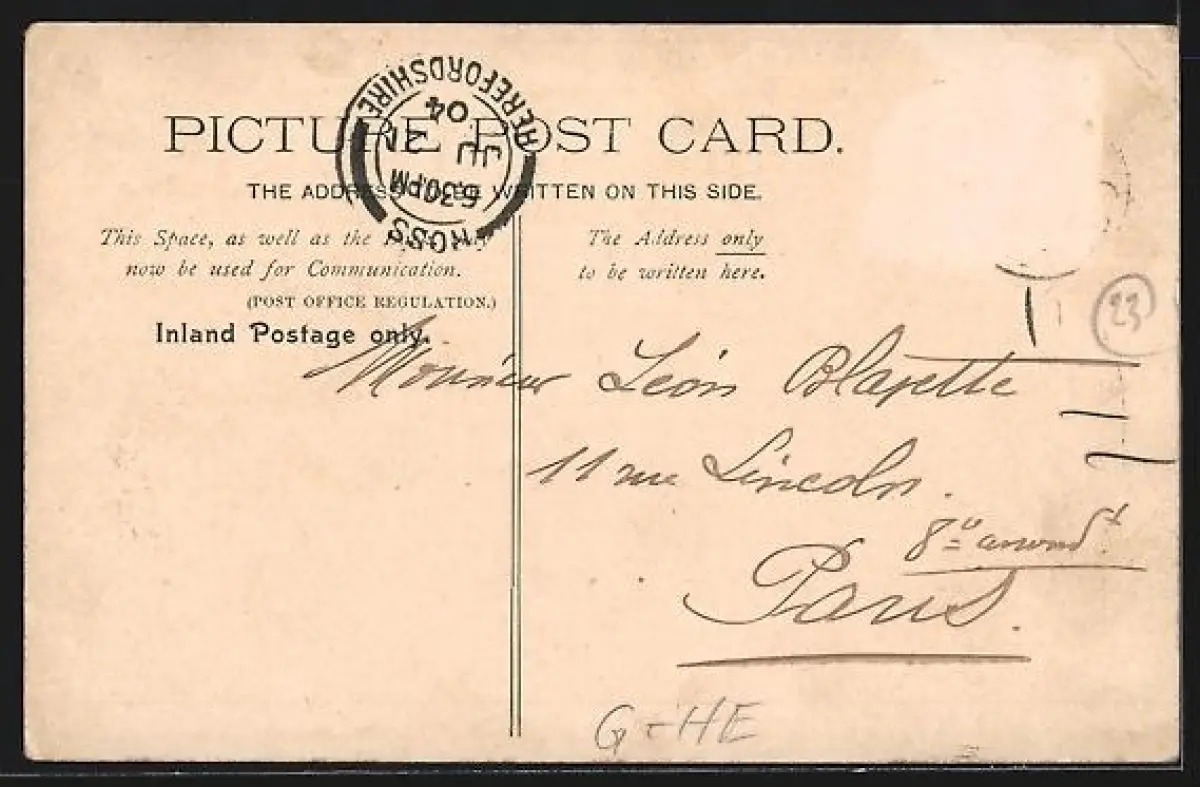 HEREFORDSHIRE
04
JU 21
6.30PM
ROSS
PICTURE POST CARD.
THE ADDRESS TO BE WRITTEN ON THIS SIDE.
This Space, as well as the
now be used for Communication.
(POST OFFICE REGULATION.)
Inland Postage only.
The Address only
to be written here.
23
Monsieur Léon
11 rue Lincoln.
8e arrondt
Paris.
G-HE